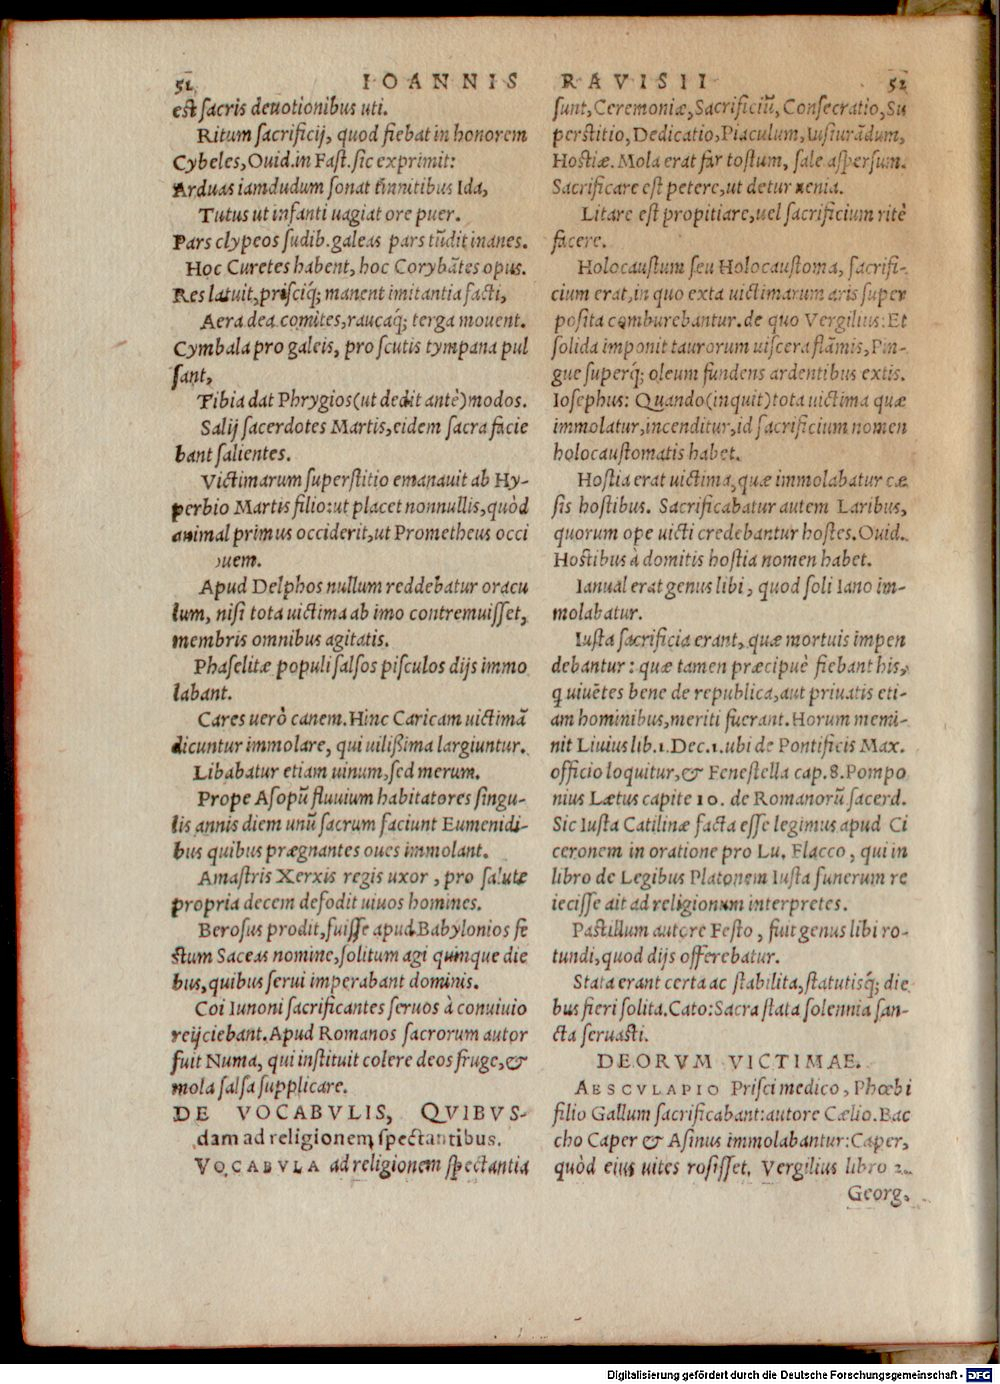 51 IOANNIS RAVISII 52
est sacris deuotionibus uti.
Ritum sacrificij, quod fiebat in honorem
Cybeles, Ouid. in Fast. sic exprimit:
Arduas iamdudum sonat tinnitibus Ida,
Tutus ut infanti uagiat ore puer.
Pars clypeos sudib. galeas pars tūdit inanes.
Hoc Curetes habent, hoc Corybātes opus.
Res latuit, prisciq́; manent imitantia facti,
Aera dea comites, raucaq́; terga mouent.
Cymbala pro galeis, pro scutis tympana pul
sant,
Tibia dat Phrygios (ut dedit antè) modos.
Salij sacerdotes Martis, eidem sacra facie
bant salientes.
Victimarum superstitio emanauit ab Hy-
perbio Martis filio: ut placet nonnullis, quòd
animal primus occiderit, ut Prometheus occi
uem.
Apud Delphos nullum reddebatur oracu
lum, nisi tota uictima ab imo contremuisset,
membris omnibus agitatis.
Phaselitæ populi salsos pisculos dijs immo
labant.
Cares uerò canem. Hinc Caricam uictimā
dicuntur immolare, qui uilißima largiuntur.
Libabatur etiam uinum, sed merum.
Prope Asopū fluuium habitatores singu-
lis annis diem unū sacrum faciunt Eumenidi-
bus quibus prægnantes oues immolant.
Amastris Xerxis regis uxor, pro salute
propria decem defodit uiuos homines.
Berosus prodit, fuisse apud Babylonios fe
stum Saceas nomine, solitum agi quinque die
bus, quibus serui imperabant dominis.
Coi Iunoni sacrificantes seruos à conuiuio
reijciebant. Apud Romanos sacrorum autor
fuit Numa, qui instituit colere deos fruge, &
mola salsa supplicare.
DE VOCABVLIS, QVIBVS-
dam ad religionem spectantibus.
VOCABVLA ad religionem spectantia
sunt, Ceremoniæ, Sacrificiū, Consecratio, Su
perstitio, Dedicatio, Piaculum, Iusiurādum,
Hostiæ. Mola erat far tostum, sale aspersum.
Sacrificare est petere, ut detur xenia.
Litare est propitiare, uel sacrificium ritè
facere.
Holocaustum seu Holocaustoma, sacrifi-
cium erat, in quo exta uictimarum aris super
posita comburebantur. de quo Vergilius: Et
solida imponit taurorum uiscera flāmis, Pin-
gue superq́; oleum fundens ardentibus extis.
Iosephus: Quando (inquit) tota uictima quæ
immolatur, incenditur, id sacrificium nomen
holocaustomatis habet.
Hostia erat uictima, quæ immolabatur cæ
sis hostibus. Sacrificabatur autem Laribus,
quorum ope uicti credebantur hostes. Ouid.
Hostibus à domitis hostia nomen habet.
Ianual erat genus libi, quod soli Iano im-
molabatur.
Iusta sacrificia erant, quæ mortuis impen
debantur: quæ tamen præcipuè fiebant his,
q uiuētes bene de republica, aut priuatis eti-
am hominibus, meriti fuerant. Horum memi-
nit Liuius lib. 1. Dec. 1. ubi de Pontificis Max.
officio loquitur, & Fenestella cap. 8. Pompo
nius Lætus capite 10. de Romanorū sacerd.
Sic Iusta Catilinæ facta esse legimus apud Ci
ceronem in oratione pro Lu. Flacco, qui in
libro de Legibus Platonem Iusta funerum re
iecisse ait ad religionum interpretes.
Pastillum autore Festo, fuit genus libi ro-
tundi, quod dijs offerebatur.
Stata erant certa ac stabilita, statutisq́; die
bus fieri solita. Cato: Sacra stata solennia san-
cta seruasti.
DEORVM VICTIMAE.
AESCVLAPIO Prisci medico, Phœbi
filio Gallum sacrificabant: autore Cælio. Bac
cho Caper & Asinus immolabantur: Caper,
quòd eius uites rosisset. Vergilius libro 2.
Georg.
Digitalisierung gefördert durch die Deutsche Forschungsgemeinschaft - DFG